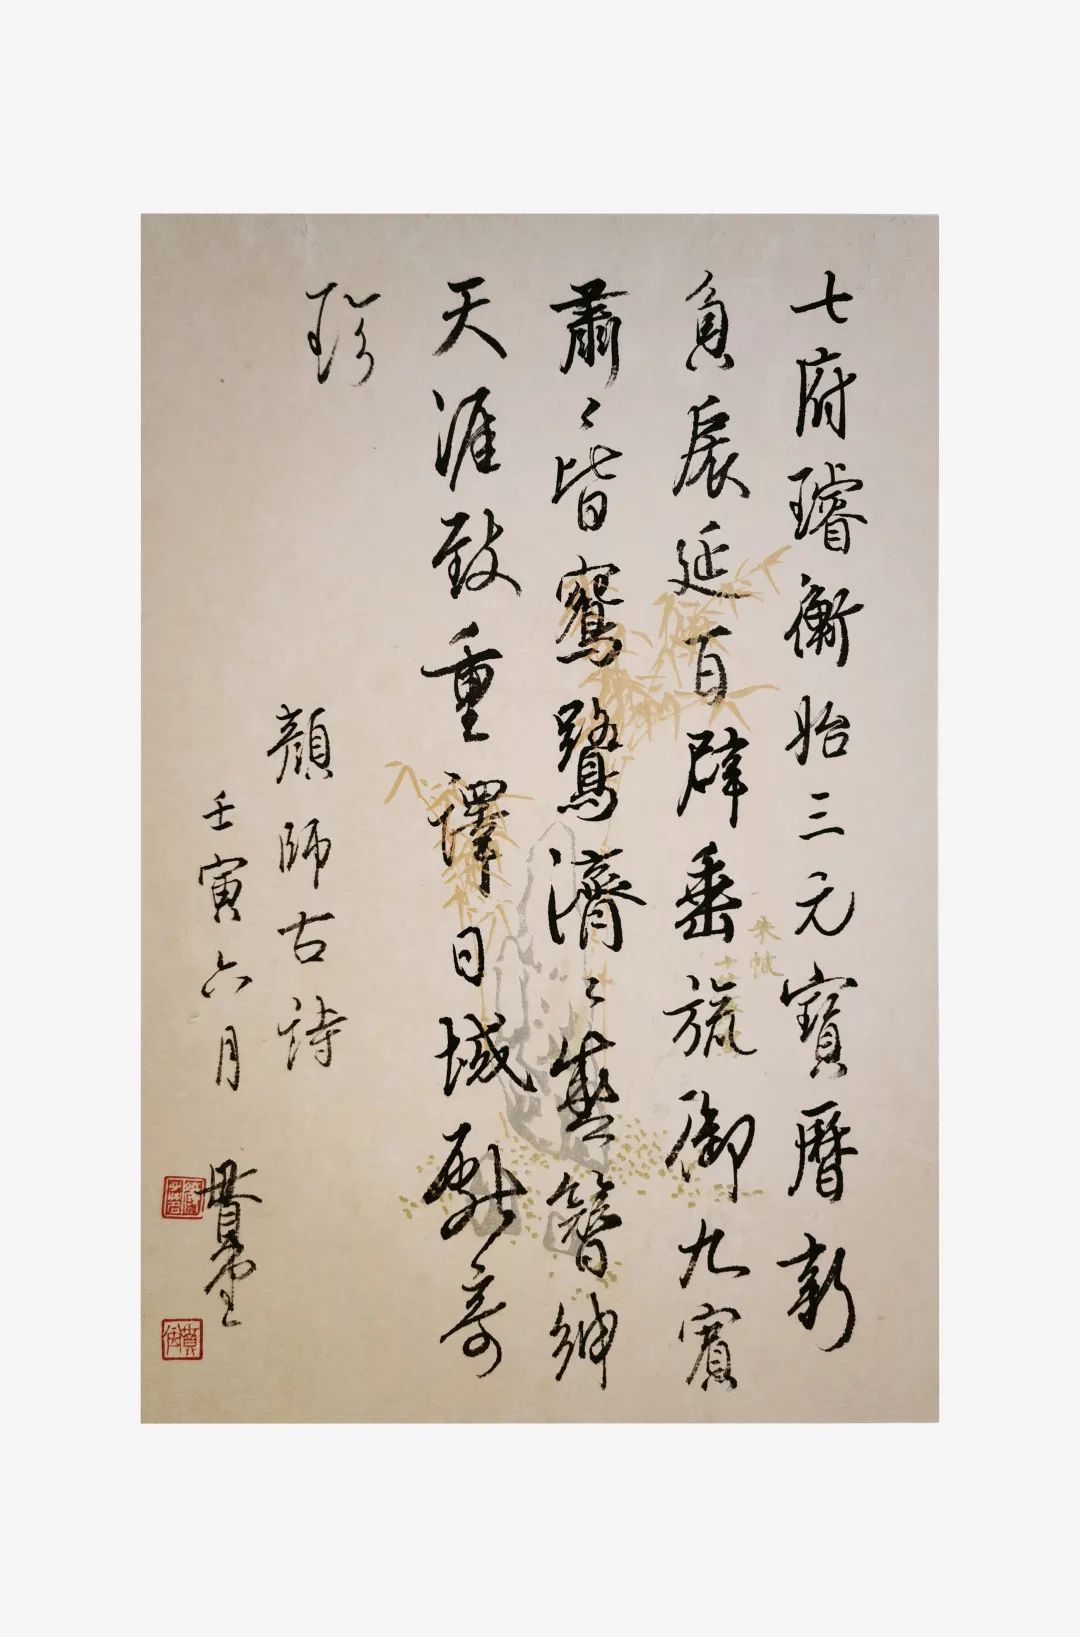 七府璿衡始三元寶曆新
負扆延百辟垂旒御九賓
肅〻皆鵷鷺濟〻盛簪紳
天涯致重譯日域獻奇
珍
顏師古詩
壬寅六月